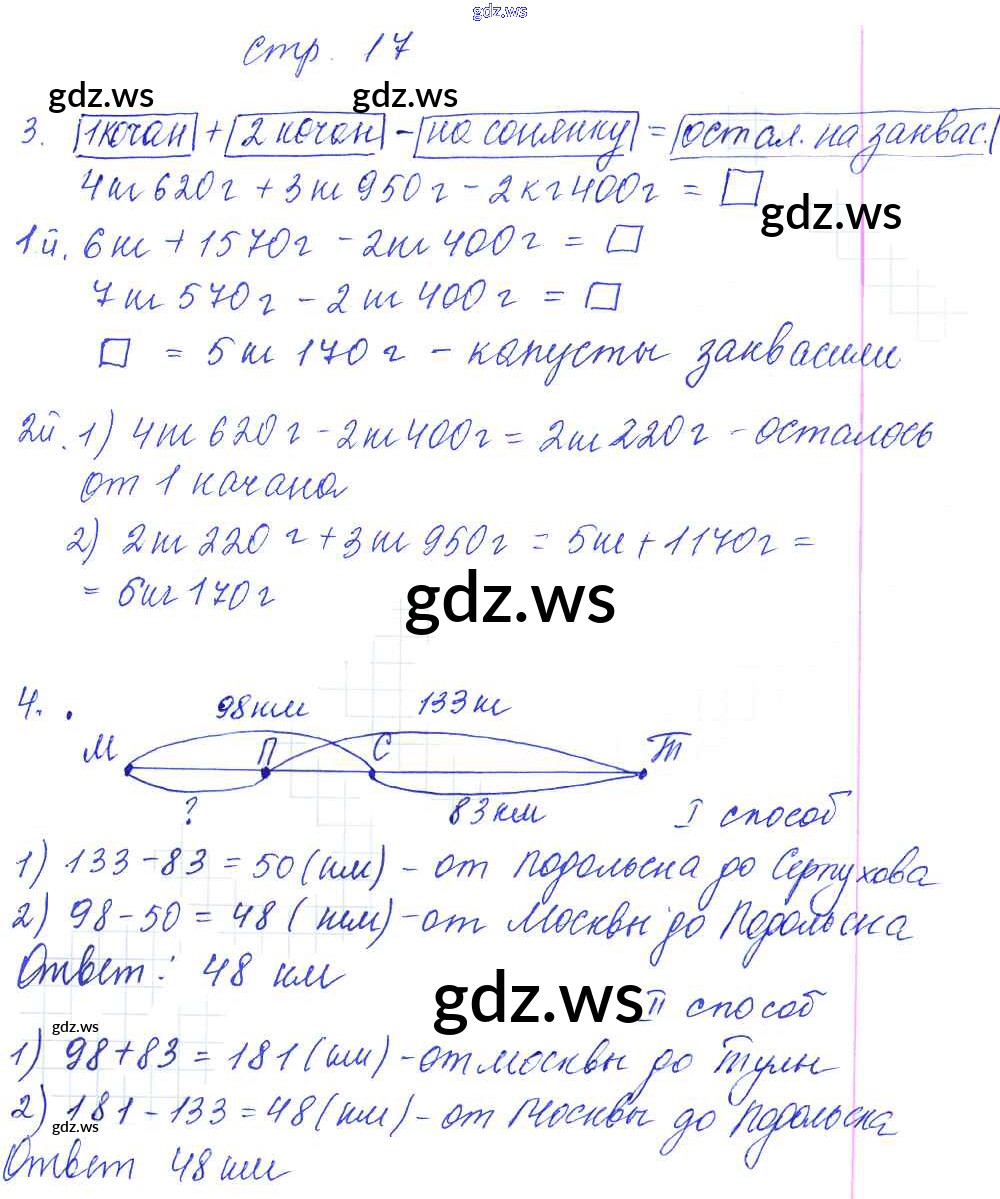 gdz.ws
стр. 17
gdz.ws gdz.ws
3. 1 кочан + 2 кочан - на солянку = остал. на заквас.
4 кг 620 г + 3 кг 950 г - 2 кг 400 г = □
gdz.ws
1й. 6 кг + 1570 г - 2 кг 400 г = □
7 кг 570 г - 2 кг 400 г = □
□ = 5 кг 170 г - капусты заквасили
2й. 1) 4 кг 620 г - 2 кг 400 г = 2 кг 220 г - осталось
от 1 качана
2) 2 кг 220 г + 3 кг 950 г = 5 кг + 1170 г =
= 6 кг 170 г
gdz.ws
4. 98 км 133 км
М П С Т
? 83 км
I способ
1) 133 - 83 = 50 (км) - от Подольска до Серпухова
2) 98 - 50 = 48 (км) - от Москвы до Подольска
Ответ: 48 км
gdz.ws
II способ
gdz.ws
1) 98 + 83 = 181 (км) - от москвы до Тулы
2) 181 - 133 = 48 (км) - от Москвы до Подольска
gdz.ws
Ответ 48 км